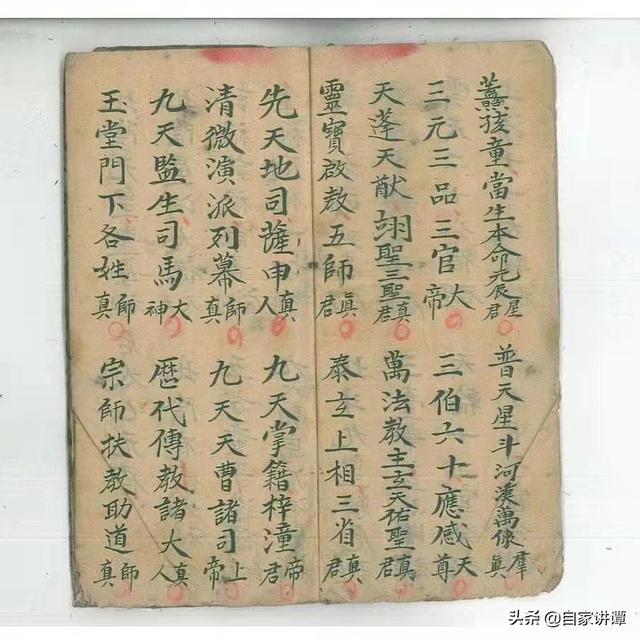 孩童當生本命元辰星君
普天星斗河漢萬像群真
三元三品三官大帝
三伯六十應感天尊
天蓬天猷翊聖三聖真君
萬法教主玄天祐聖真君
靈寶啟教五師真君
泰玄上相三省真君
先天地司薩申真人
九天掌籍梓潼帝君
清微演派列幕師真
九天天曹諸司上帝
九天監生司馬大神
歴代傳教諸大真人
玉堂門下各姓師真
宗師扶教助道師真
头条 @自家讲谭